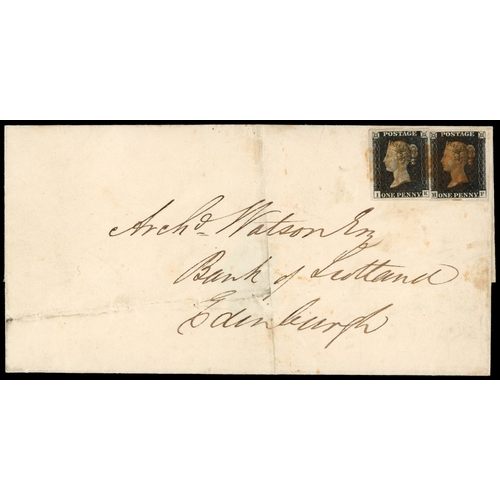 POSTAGE POSTAGE
ONE PENNY ONE PENNY
Archd. Watson Esq
Bank of Scotland
Edinburgh